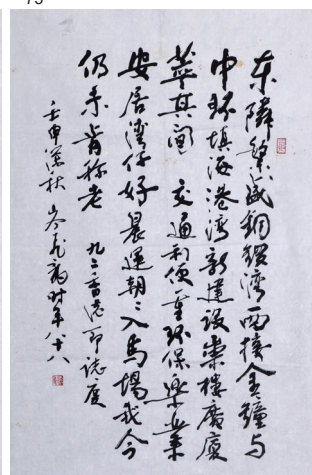 东隣繁盛銅鑼湾西接金鐘与
中环填海港湾新建设崇楼广厦
萃其间 交通利便重环保乐业
安居湾仔好晨运朝〻入马场我今
仍未肯称老 九二香港即誌度
壬申深秋 岑飞龙时年八十八